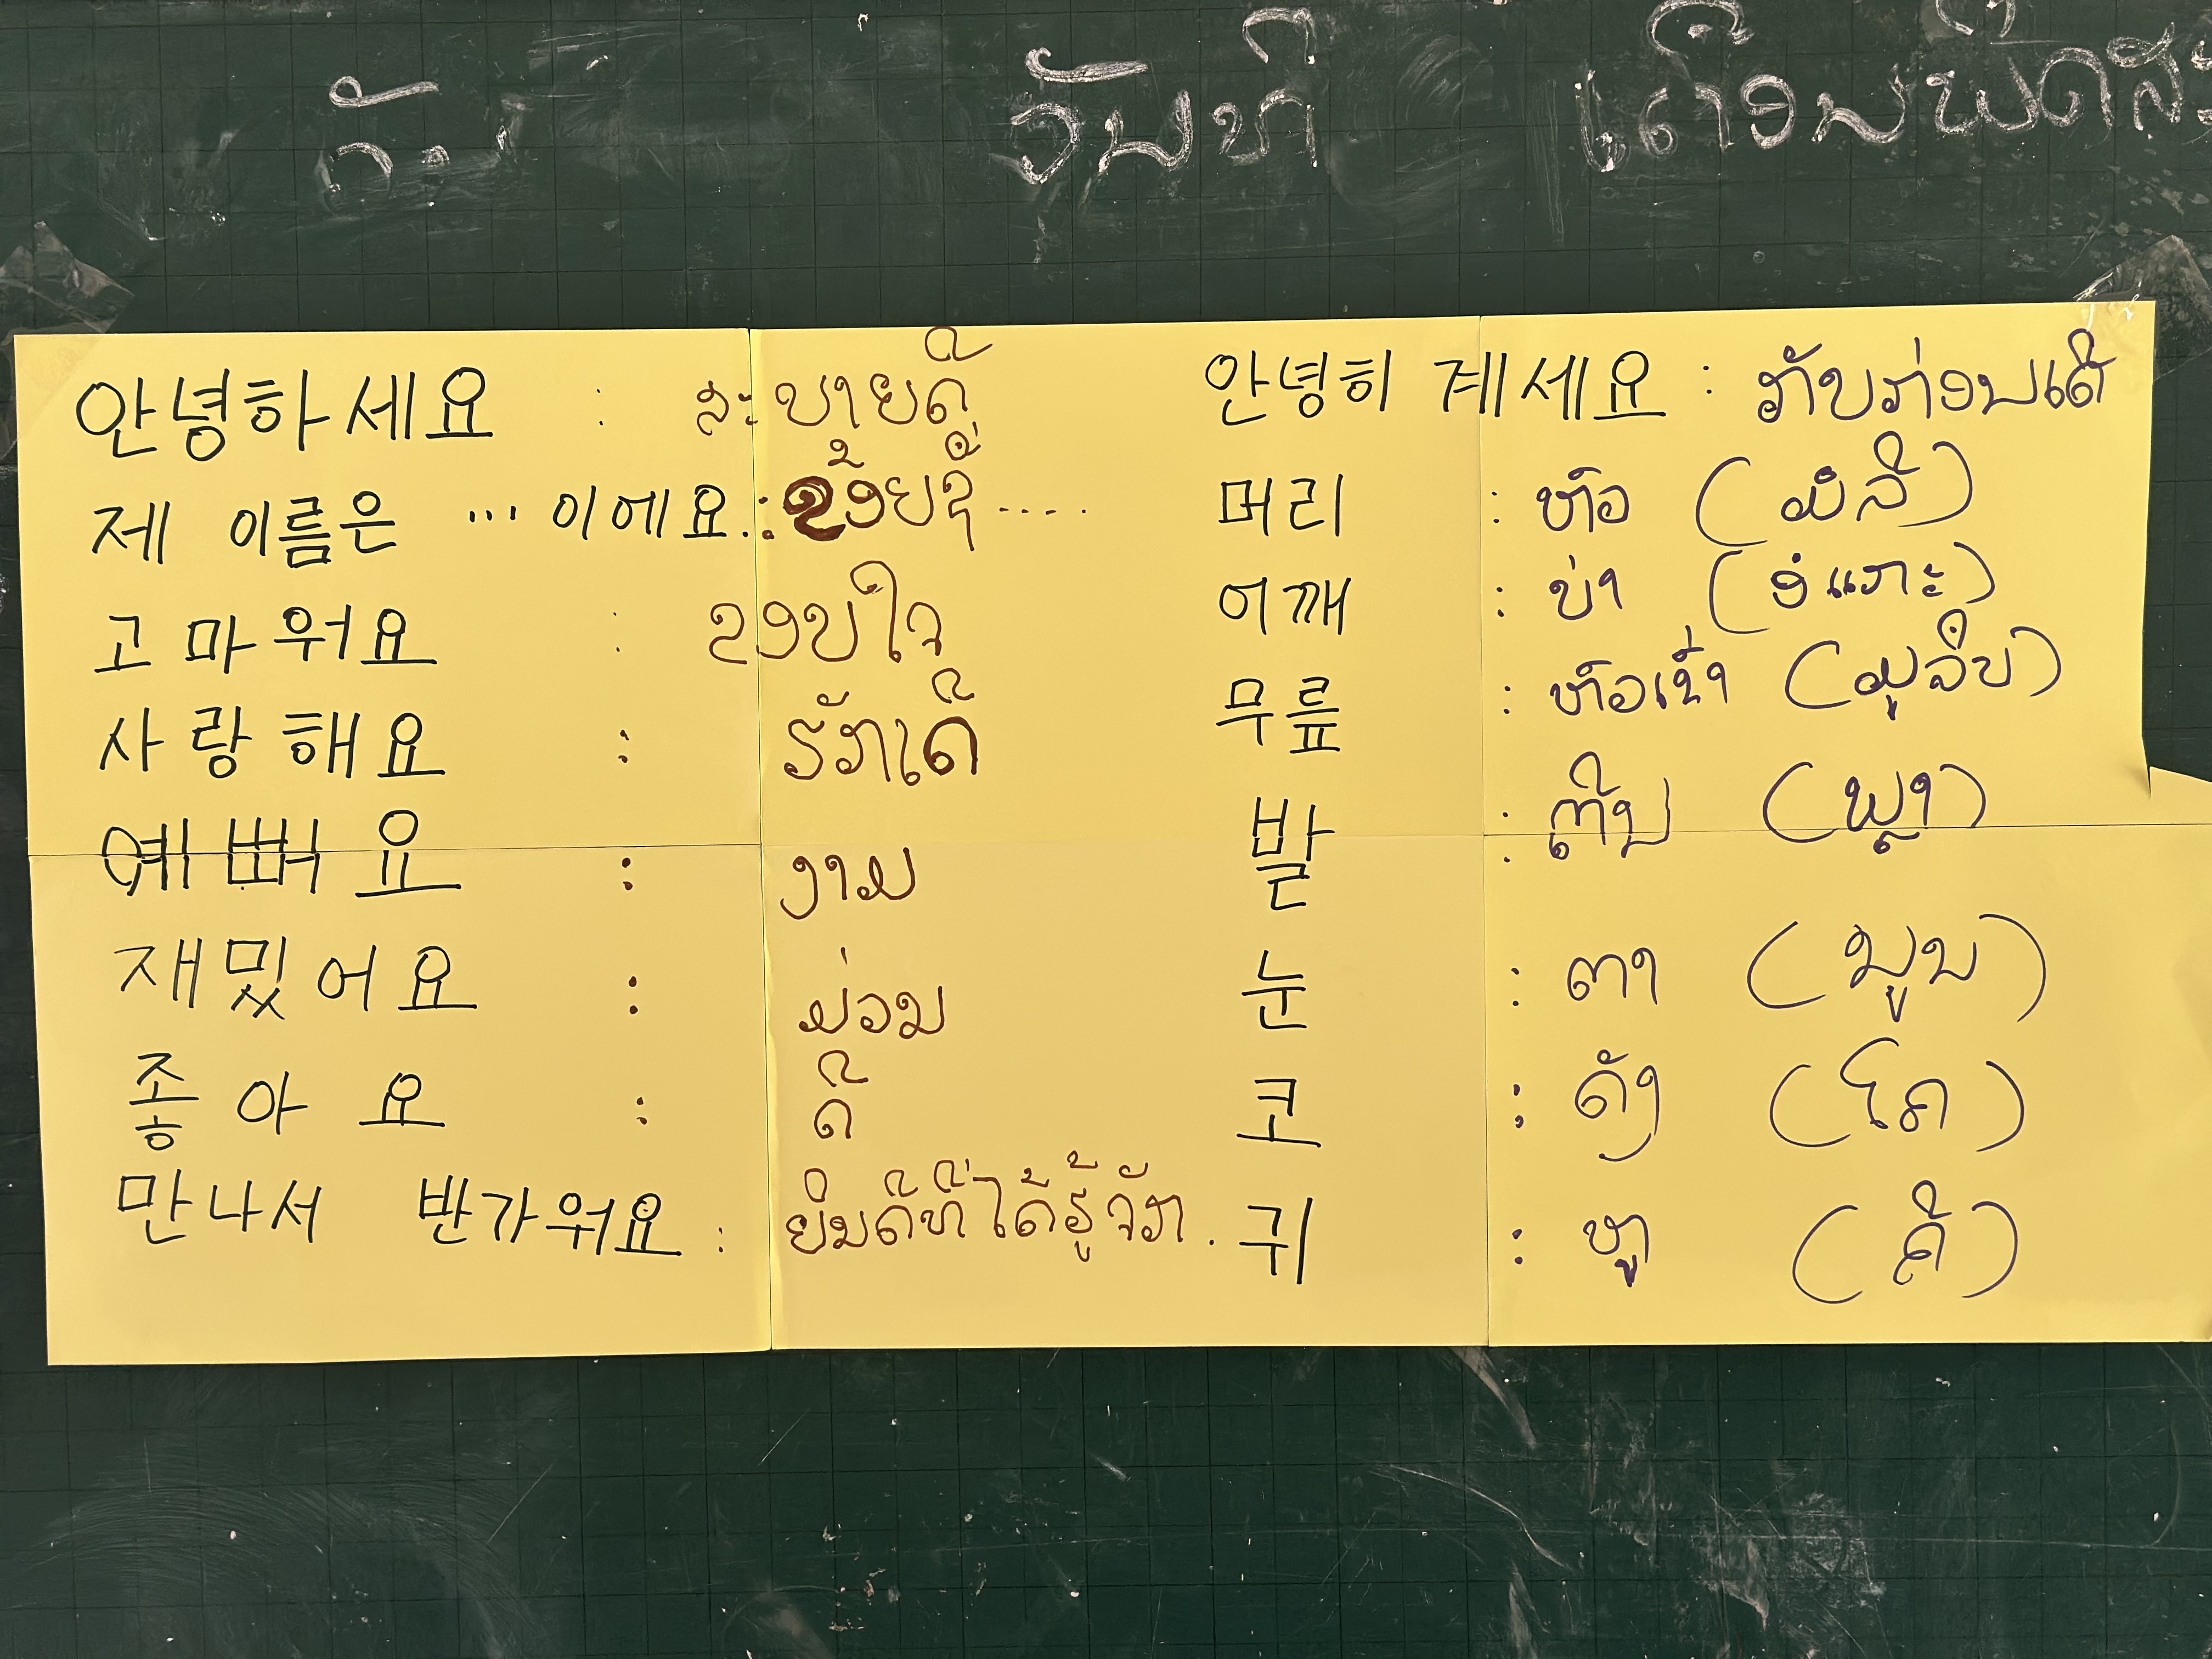 ວັນທີ ເດືອນພຶດສະ
안녕하세요 : ສະບາຍດີ
제 이름은 ... 이에요. : ຂ້ອຍຊື່ .....
고마워요 : ຂອບໃຈ
사랑해요 : ຮັກເດີ້
예뻐요 : ງາມ
재밌어요 : ມ່ວນ
좋아요 : ດີ
만나서 반가워요 : ຍິນດີທີ່ໄດ້ຮູ້ຈັກ.
안녕히 계세요 : ກັບກ່ອນເດີ້
머리 : ຫົວ (ມໍລີ)
어깨 : ບ່າ (ອໍແກະ)
무릎 : ຫົວເຂົ່າ (ມູລຶບ)
발 : ຕີນ (ພຼາ)
눈 : ຕາ (ນູນ)
코 : ດັງ (ໂຄ)
귀 : ຫູ (ຄີ)